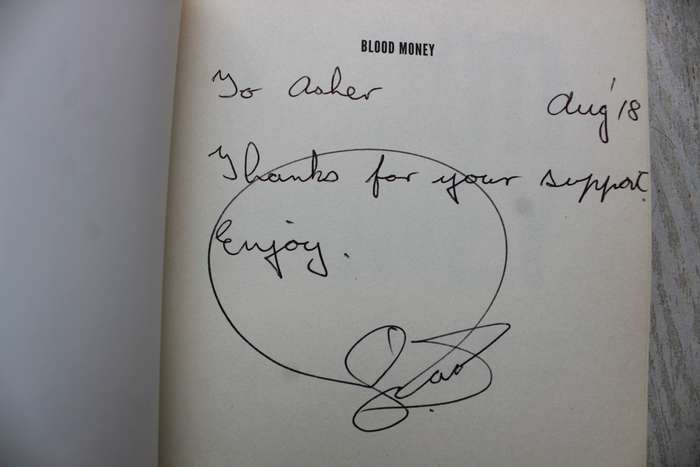 BLOOD MONEY
To Asher
Aug '18
Thanks for your support.
Enjoy.